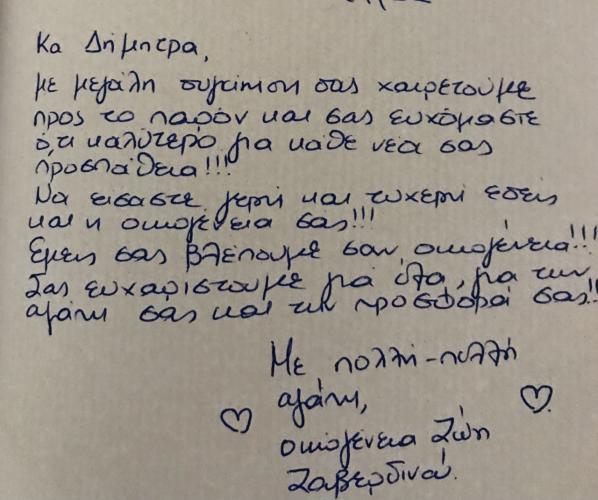 Κα Δήμητρα,
με μεγάλη συγκίνηση σας χαιρετούμε
προς το παρόν και σας ευχόμαστε
ό,τι καλύτερο για κάθε νέα σας
προσπάθεια!!!
Να εισαστε γερή και τυχερή εσείς
και η οικογένεια σας!!!
Εμείς σας βλέπουμε σαν οικογένεια!!!
Σας ευχαριστούμε για όλα, για την
αγάπη σας και την προσφορά σας!!
Με πολλή-πολλή
αγάπη,
οικογένεια Ζώη
Ζαβερδινού.